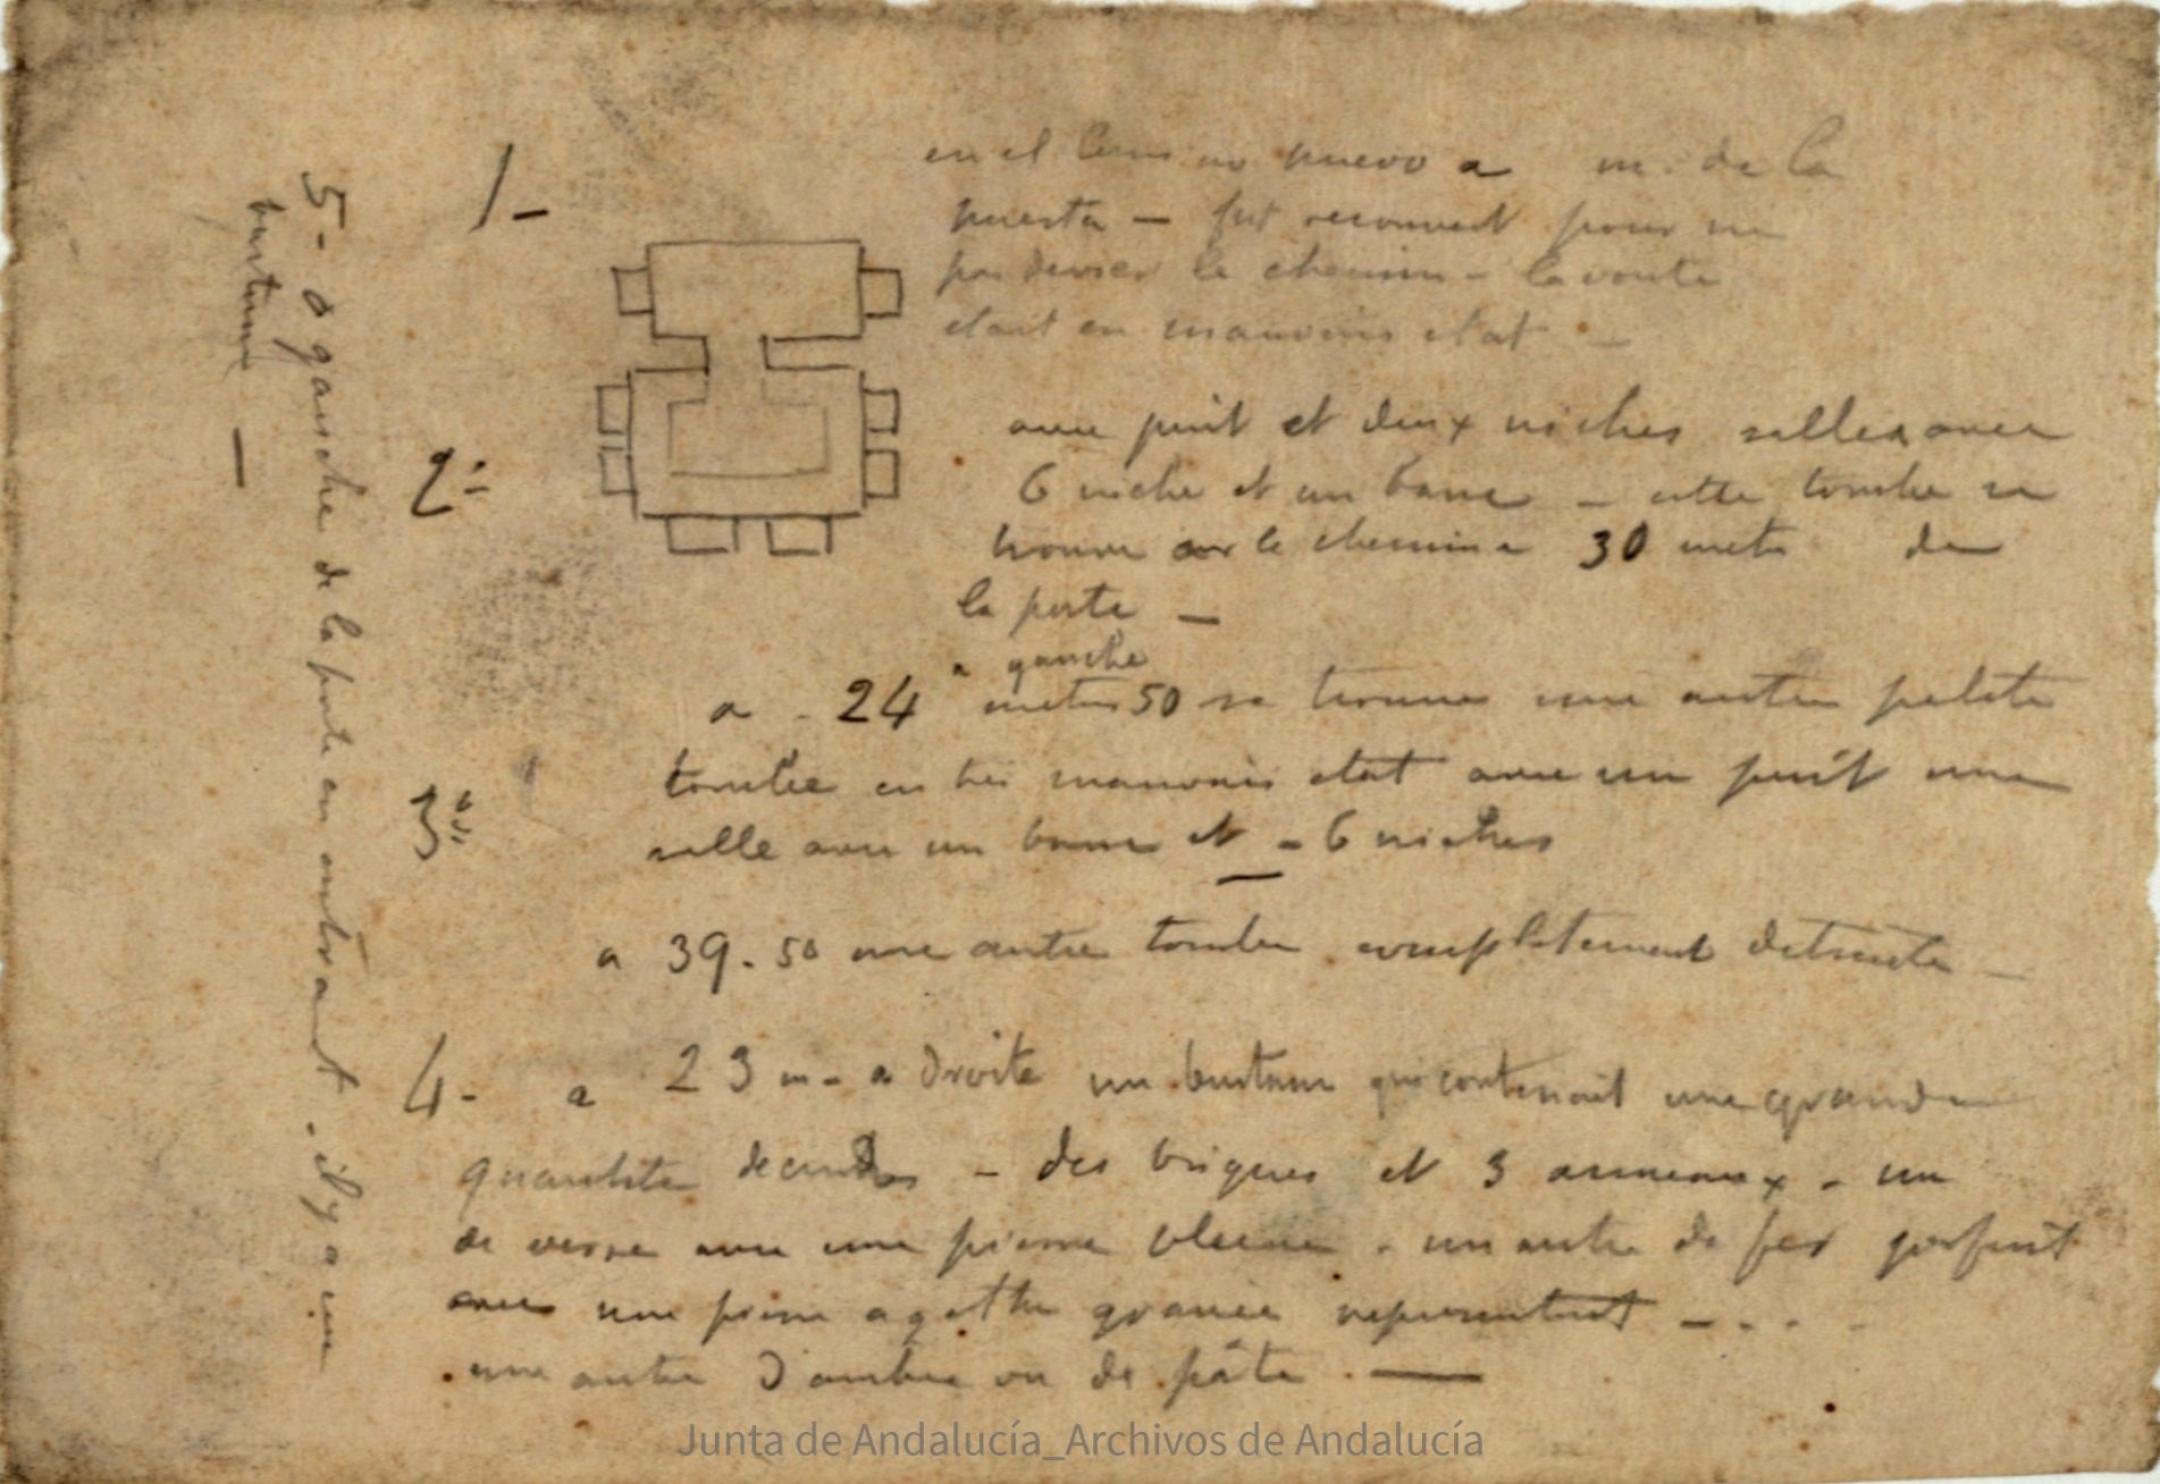 1-
en el Camino nuevo a m. de la
puerta - fut reconvert pour ne
pas devier le chemin - la voute
etait en mauvais etat -
2º
avec puit et deux niches salle avec
6 niche et un banc - cette tombe se
trouve sur le chemin a 30 mets de
la porte -
a gauche
a - 24 metres 50 se trouve une autre petite
tombe en tres mauvais etat avec un puit une
salle avec un banc et - 6 niches
3º
a 39.50 une autre tombe completement detruite -
4- a 23 m - a droite un bustum qui contenait une grande
quantite de cendres - des briques et 3 anneaux - un
de verre avec une pierre bleue - un autre de fer
avec une pierre agathe gravee representant - . . .
une autre d'ambre ou de pâte. -
5- a gauche de la porte en entrant - il y a un
bustum -
Junta de Andalucía_Archivos de Andalucía